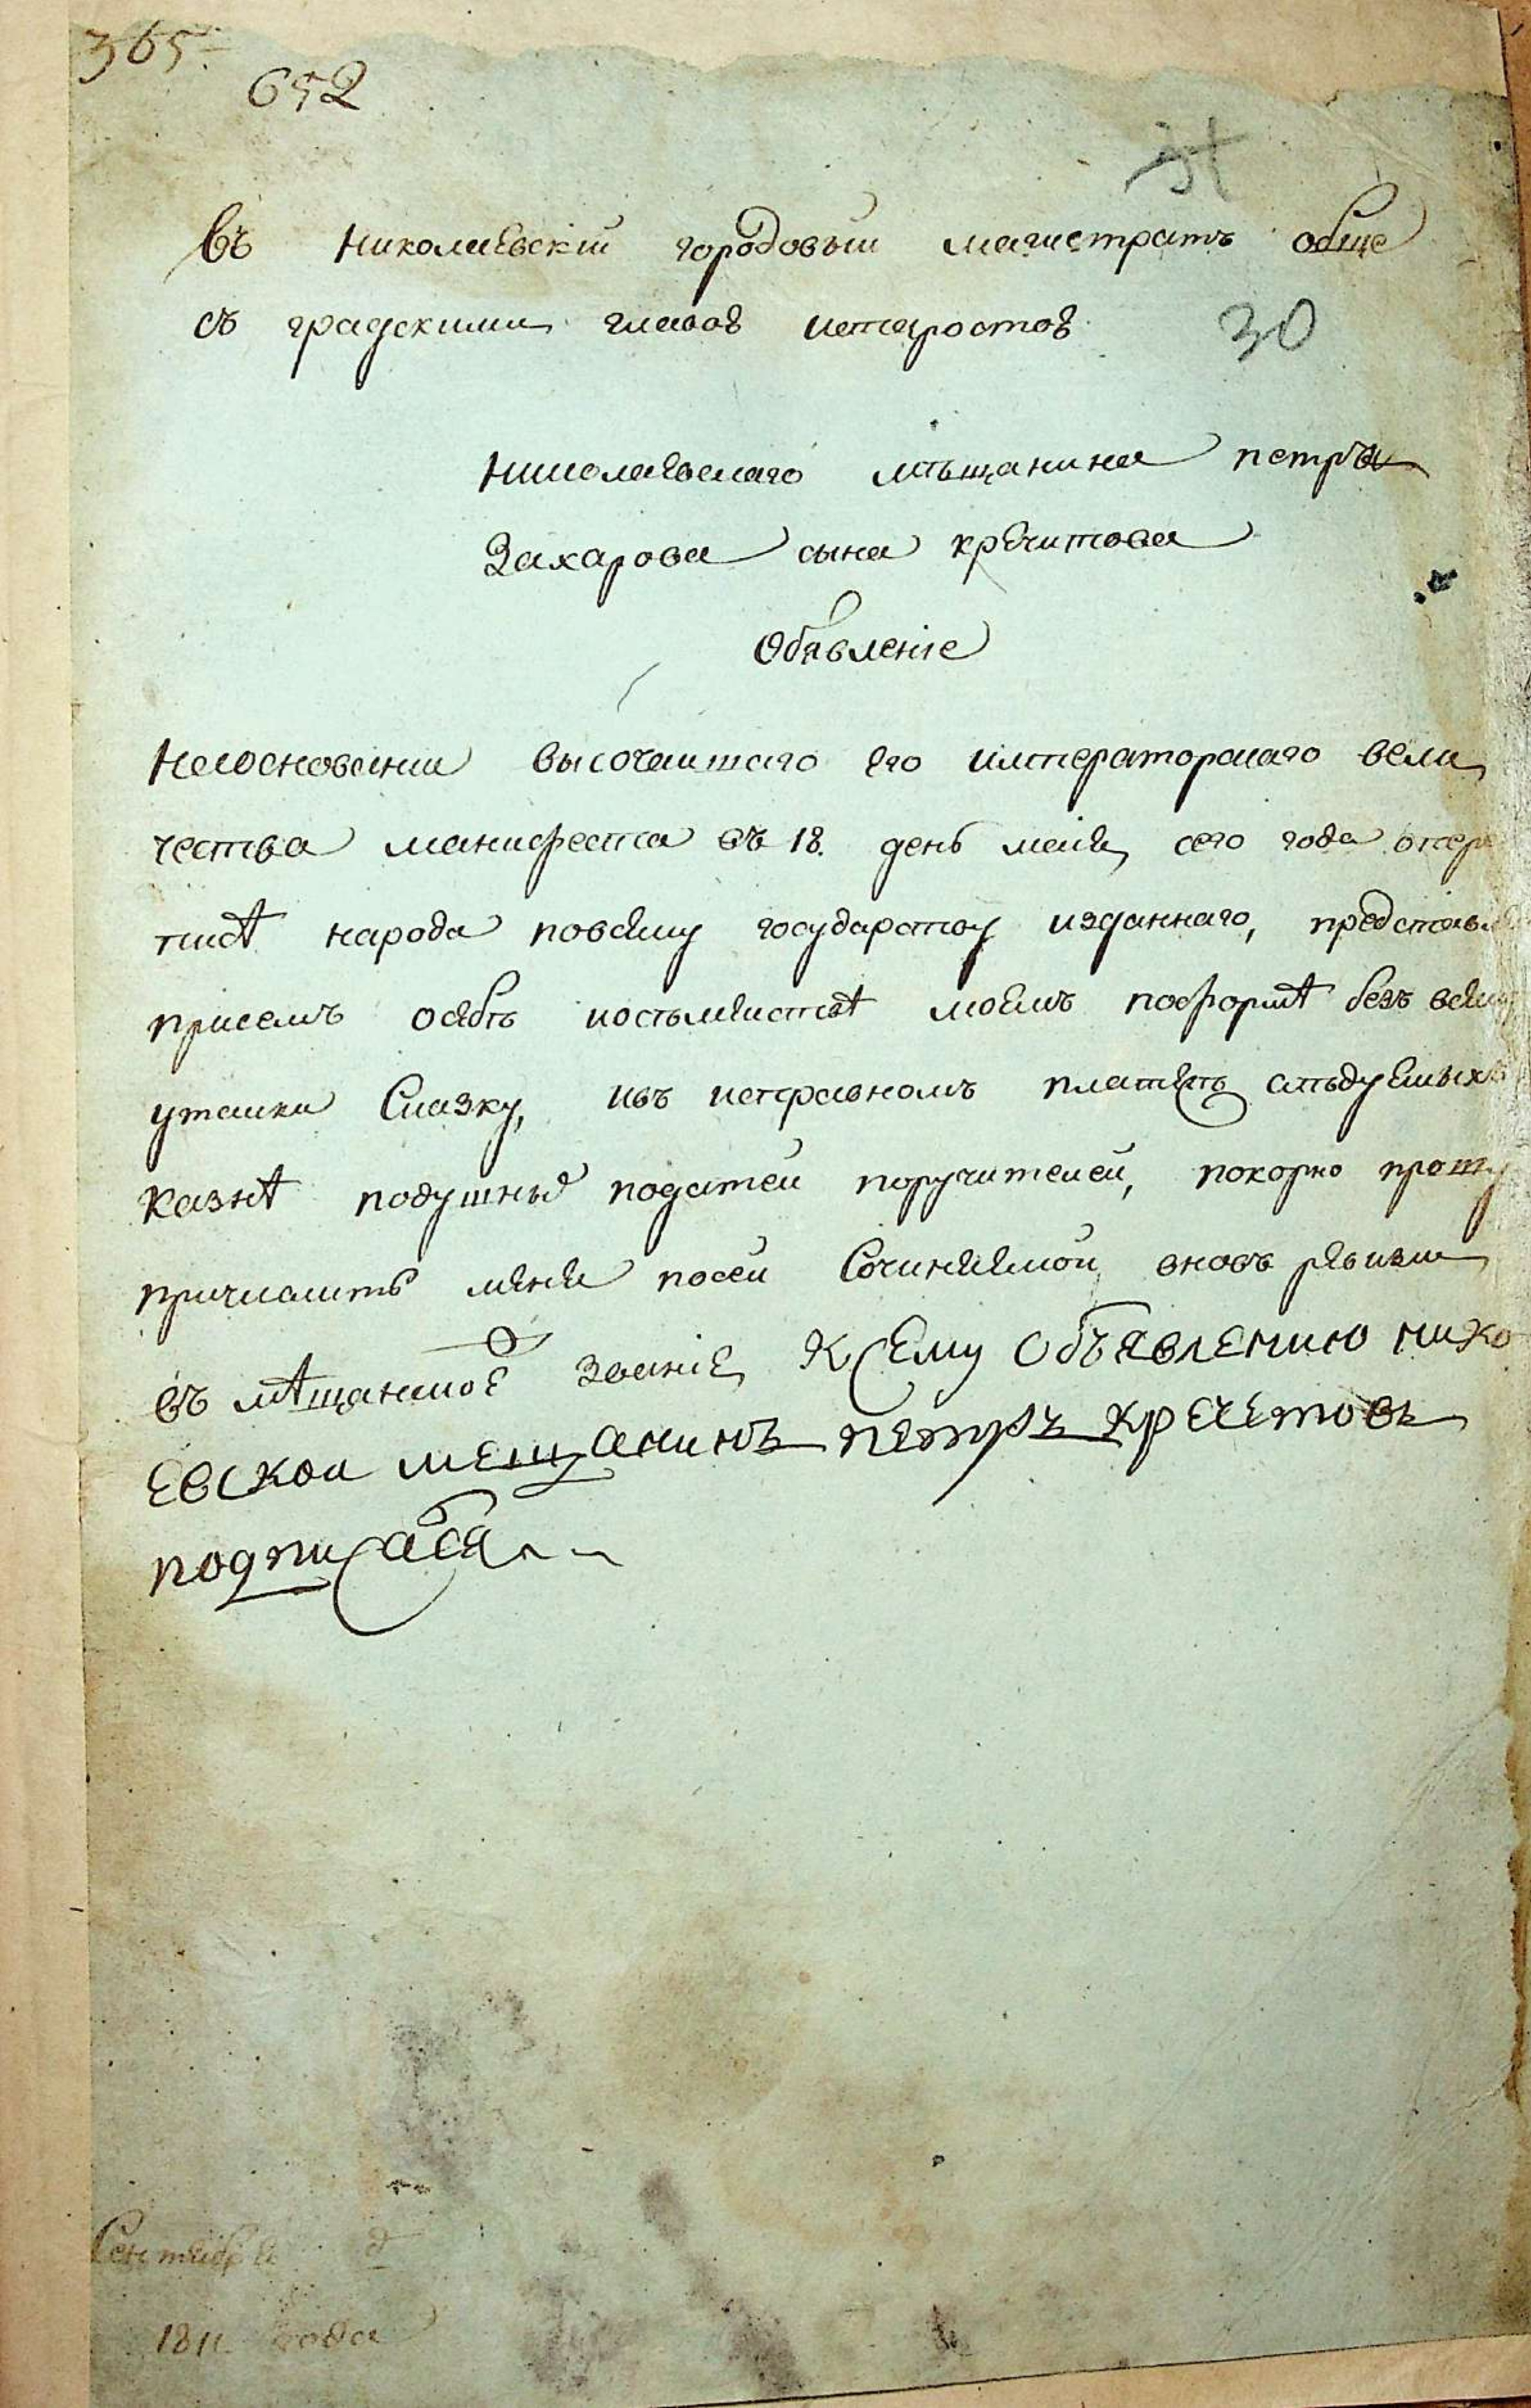 365.
652
30
въ Николаевскїй городовый магистратъ обще
съ градскими главою истаростою
Николаевскаго мѣщанина петра
Захарова сына кречитова
Обявленіе
Наоснованіи высочаишаго его императорскаго вели
чества манифеста въ 18. день маія сего года опере
писѣ народа повсему государству изданнаго, представля
присемъ осебѣ исъсемѣиствѣ моемъ поформѣ безъ всяко
утаики Сказку, ивъ исправномъ платежѣ слѣдуемыхъ
казнѣ подушныхъ податей поручителей, покорно прошу
причислить меня посей Сочиняемой вновь ревизіи
въ мѣщанское званіе, К сему объявлению нико
евскои мещанинъ петръ кречетовъ
подписался
Сентября д
1811 года